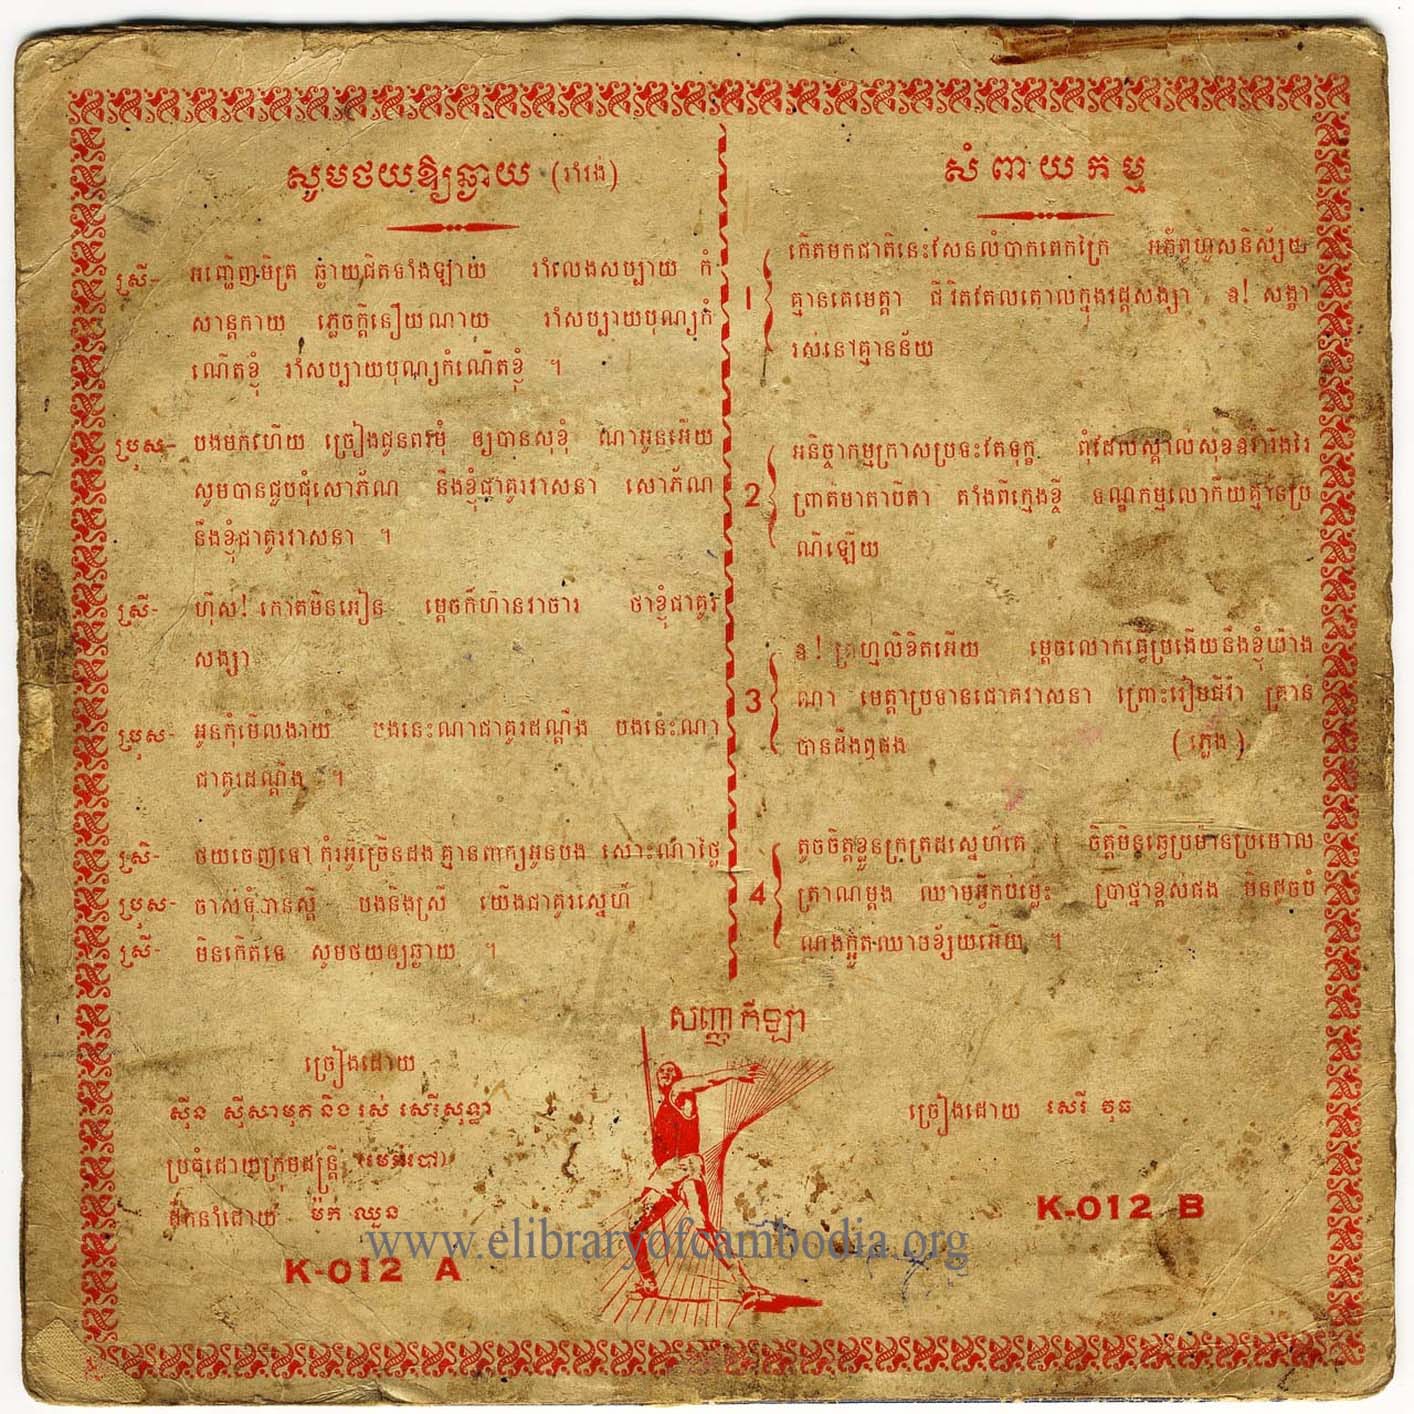 សូមថយឱ្យឆ្ងាយ (រាំវង់)
ស្រី- អញ្ជើញមិត្រ ឆ្ងាយជិតទាំងឡាយ រាំលេងសប្បាយ កំ
សាន្តកាយ ភ្លេចក្តីនឿយណាយ រាំសប្បាយបុណ្យកំ
ណើតខ្ញុំ រាំសប្បាយបុណ្យកំណើតខ្ញុំ ។
ប្រុស- បងមកហើយ ច្រៀងជូនពរមុំ ឲ្យបានសុខុំ ណាអូនអើយ
សូមបានជួបជុំសោភ័ណ នឹងខ្ញុំជាគូរវាសនា សោភ័ណ
នឹងខ្ញុំជាគូរវាសនា ។
ស្រី- ហ៊ឺស! កោតមិនអៀន ម្តេចក៏ហ៊ានវាចារ ថាខ្ញុំជាគូរ
សង្សា
ប្រុស- អូនកុំមើលងាយ បងនេះណាជាគូរដណ្តឹង បងនេះណា
ជាគូរដណ្តឹង ។
ស្រី- ថយចេញទៅ កុំរអ៊ូច្រើនដង គ្មានពាក្យអូនបង សោះណាថ្លៃ
ប្រុស- ចាស់ទុំបានស្តី បងនិងស្រី យើងជាគូរស្នេហ៍
ស្រី- មិនកើតទេ សូមថយឲ្យឆ្ងាយ ។
ច្រៀងដោយ
ស៊ីន ស៊ីសាមុត និង រស់ សេរីសុទ្ធា
ប្រគុំដោយក្រុមតន្ត្រី
ដឹកនាំដោយ ម៉ក់ ឈួន
K-012 A
សំពាយកម្ម
1 កើតមកជាតិនេះសែនលំបាកពេកក្រៃ អភ័ព្វហួសនិស្ស័យ
គ្មានគេមេត្តា ជីវិតតែលតោលក្នុងវដ្តសង្សា ឧ! សង្ខា
រស់នៅគ្មានន័យ
2 អនិច្ចាកម្មក្រាសប្រទះតែទុក្ខ ពុំដែលស្គាល់សុខឧរារីងរៃ
ព្រាត់មាតាបិតា តាំងពីក្មេងខ្ចី ទណ្ឌកម្មលោកីយគ្មានប្រ
ណីឡើយ
3 ឧ! ព្រហ្មលិខិតអើយ ម្តេចលោកធ្វើប្រងើយនឹងខ្ញុំយ៉ាង
ណា មេត្តាប្រទានជោគវាសនា ព្រោះរៀមជីវ៉ា គ្រាន
បានដឹងឮផង (ភ្លេង)
4 តូចចិត្តខ្លួនក្រត្រដរស្នេហ៍គេ ចិត្តមិនឆ្វេប្រម៉ានប្រមោល
ត្រាណម្តង ឈាមអ្វីកប់ម្ល៉េះ ប្រាថ្នាខ្ពស់ផង មិនដូចបំ
ណងក្អួតឈាមខ្ស័យអើយ ។
សញ្ញាកីឡា
ច្រៀងដោយ សេរី វុធ
K-012 B
www.elibraryofcambodia.org